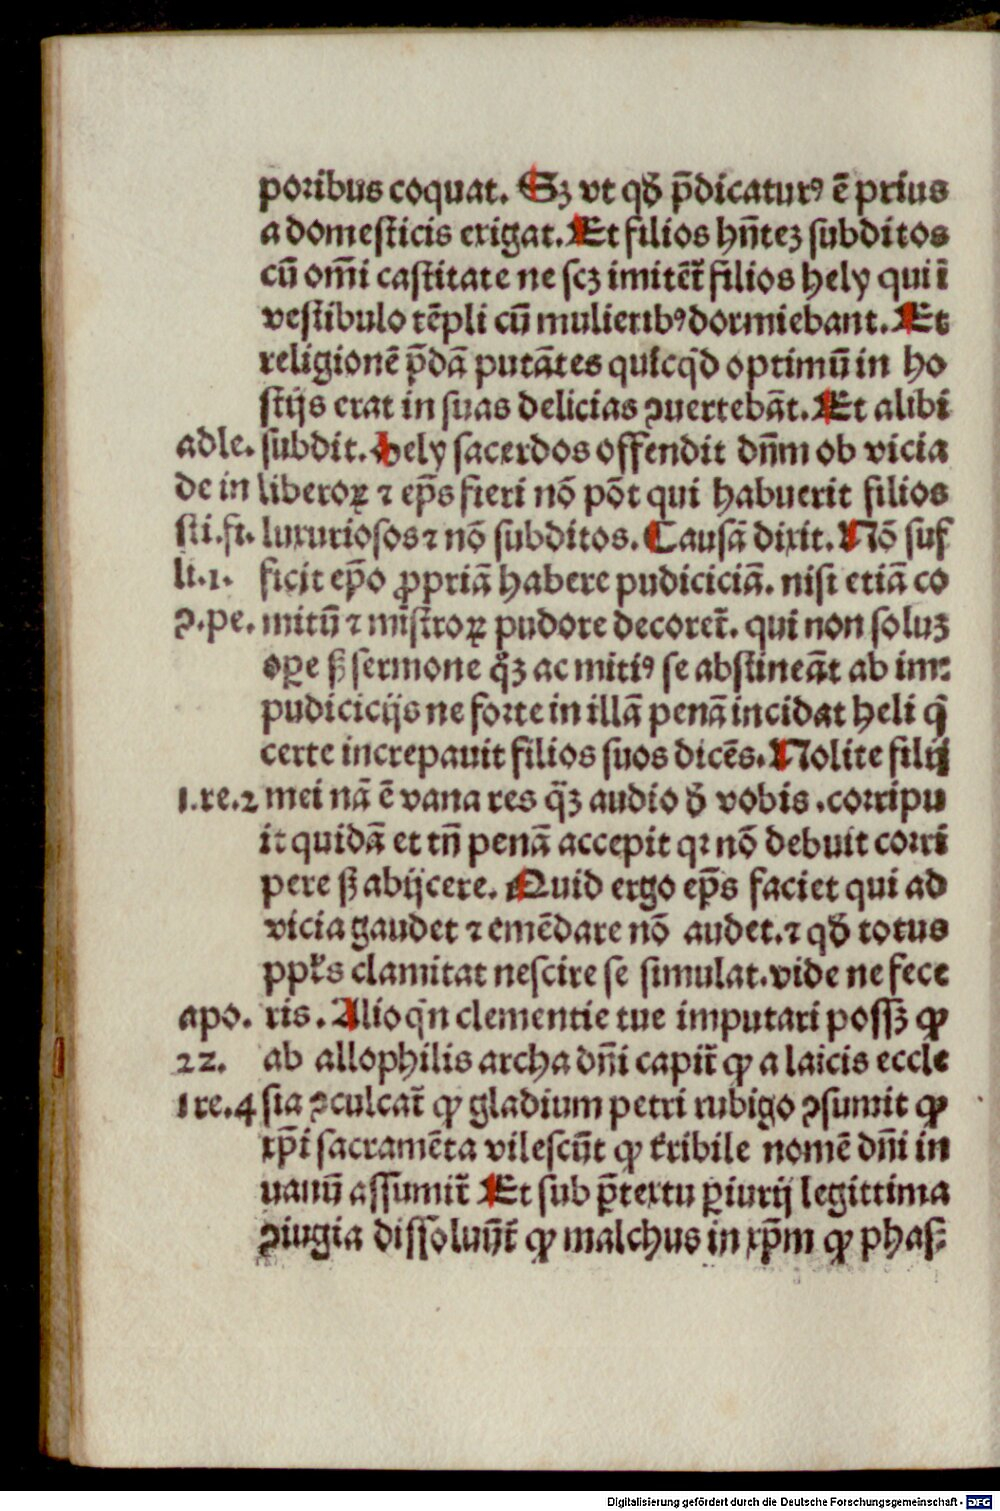 poribus coquat. Sꝫ vt qđ p̄dicaturꝰ ē prius
a domesticis exigat. Et filios hn̄tez subditos
cū om̄i castitate ne scꝫ imitēt᷑ filios hely qui ī
vestibulo tēpli cū mulieribꝰ dormiebant. Et
religionē p̄dā putātes quicqd̄ optimū in ho
stijs erat in suas delicias ꝯuertebāt. Et alibi
adle. subdit. Hely sacerdos offendit dn̄m ob vicia
de in liberoꝝ ⁊ ep̄s fieri nō pōt qui habuerit filios
sti. fi. luxuriosos ⁊ nō subditos. Causā dixit. Nō suf
li.1. ficit ep̄o ꝓpriā habere pudiciciā. nisi etiā co
ꝯ.pe. mitū ⁊ mīstroꝝ pudore decoret᷑. qui non soluꝫ
oꝑe sꝫ sermone qꝫ ac mitiꝰ se abstineāt ab im:
pudicicijs ne forte in illā penā incidat heli q̄
certe increpauit filios suos dicēs. Nolite filij
1.re.2 mei nā ē vana res qꝫ audio đ vobis .corripu
it quidā et tn̄ penā accepit qꝛ nō debuit corri
pere sꝫ abijcere. Quid ergo ep̄s faciet qui ad
vicia gaudet ⁊ emēdare nō audet. ⁊ qđ totus
ppl̄s clamitat nescire se simulat. vide ne fece
apo. ris. Alioqn̄ clementie tue imputari possꝫ ꝙ
22. ab allophilis archa dn̄i capit᷑ ꝙ a laicis eccle
1re.4 sia ꝯculcat᷑ ꝙ gladium petri rubigo ꝯsumit ꝙ
xp̄i sacramēta vilescūt ꝙ t̄ribile nomē dn̄i in
uanū assumit᷑ Et sub p̄textu ꝑiurij legittima
ꝯiugia dissoluūt᷑ ꝙ malchus in xp̄m ꝙ phas:
Digitalisierung gefördert durch die Deutsche Forschungsgemeinschaft - DFG